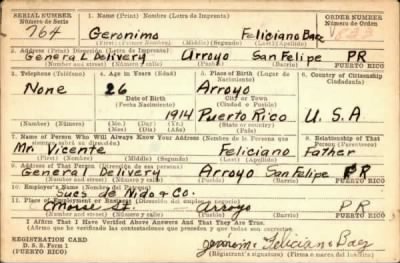 SERIAL NUMBER
Número de Serie
1. Name (Print) Nombre (Letra de Imprenta)
ORDER NUMBER
Número de Orden
764 Geronimo Feliciano Baez
(First) (Primero) (Middle) (Segundo) (Last) (Apellido)
2. Address (Print) Dirección (Letra de Imprenta)
General Delivery Arroyo San Felipe PR
(Number and street) (Número y calle) (Town) (Pueblo) PUERTO RICO
3. Telephone (Teléfono) 4. Age in Years (Edad) 5. Place of Birth (Lugar de Nacimiento) 6. Country of Citizenship (Ciudadanía)
None 26 Arroyo
Date of Birth City or Town
(Fecha Nacimiento) (Ciudad o Pueblo)
1914 Puerto Rico U.S.A
(Number) (Número) (Mo.) (Day) (Yr.) (State or country)
7. Name of Person Who Will Always Know Your Address (Nombre de la Persona que 8. Relationship of That Person
Mr. Vicente Feliciano Father
(First) (Middle) (Segundo) (Last) (Apellido)
9. Address of That Person (Dirección de esa persona)
General Delivery Arroyo San Felipe PR
(Number and street) (Número y calle) (Town) (Pueblo) PUERTO RICO
10. Employer's Name (Nombre del Patrono)
Sucs de Nido & Co.
11. Place of Employment or Business (Dirección del empleo o negocio)
Morse St. Arroyo PR
(Number and street) (Número y calle) (Town) (Pueblo) PUERTO RICO
I Affirm That I Have Verified Above Answers And That They Are True.
(Afirmo que he verificado las contestaciones que preceden y que estas son ciertas).
REGISTRATION CARD
D. S. S. Form 1
Geronimo Feliciano Baez
(Registrant's signature) (Firma o marca del inscrito)